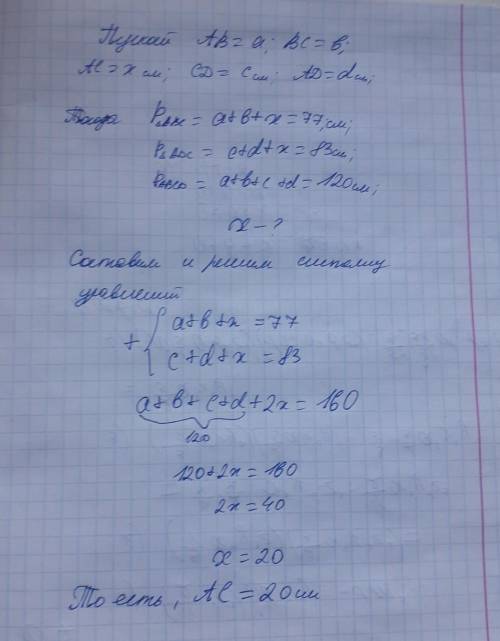 Пускай AB = a; BC = b;
AC = x см; CD = c см; AD = d см;
Тогда P△ABC = a+b+x = 77 см;
P△ADC = c+d+x = 83 см;
PABCD = a+b+c+d = 120 см;
x - ?
Составим и решим систему
уравнений
+ { a+b+x = 77
c+d+x = 83
a+b+c+d+2x = 160
120
120+2x = 160
2x = 40
x = 20
То есть, AC = 20 см